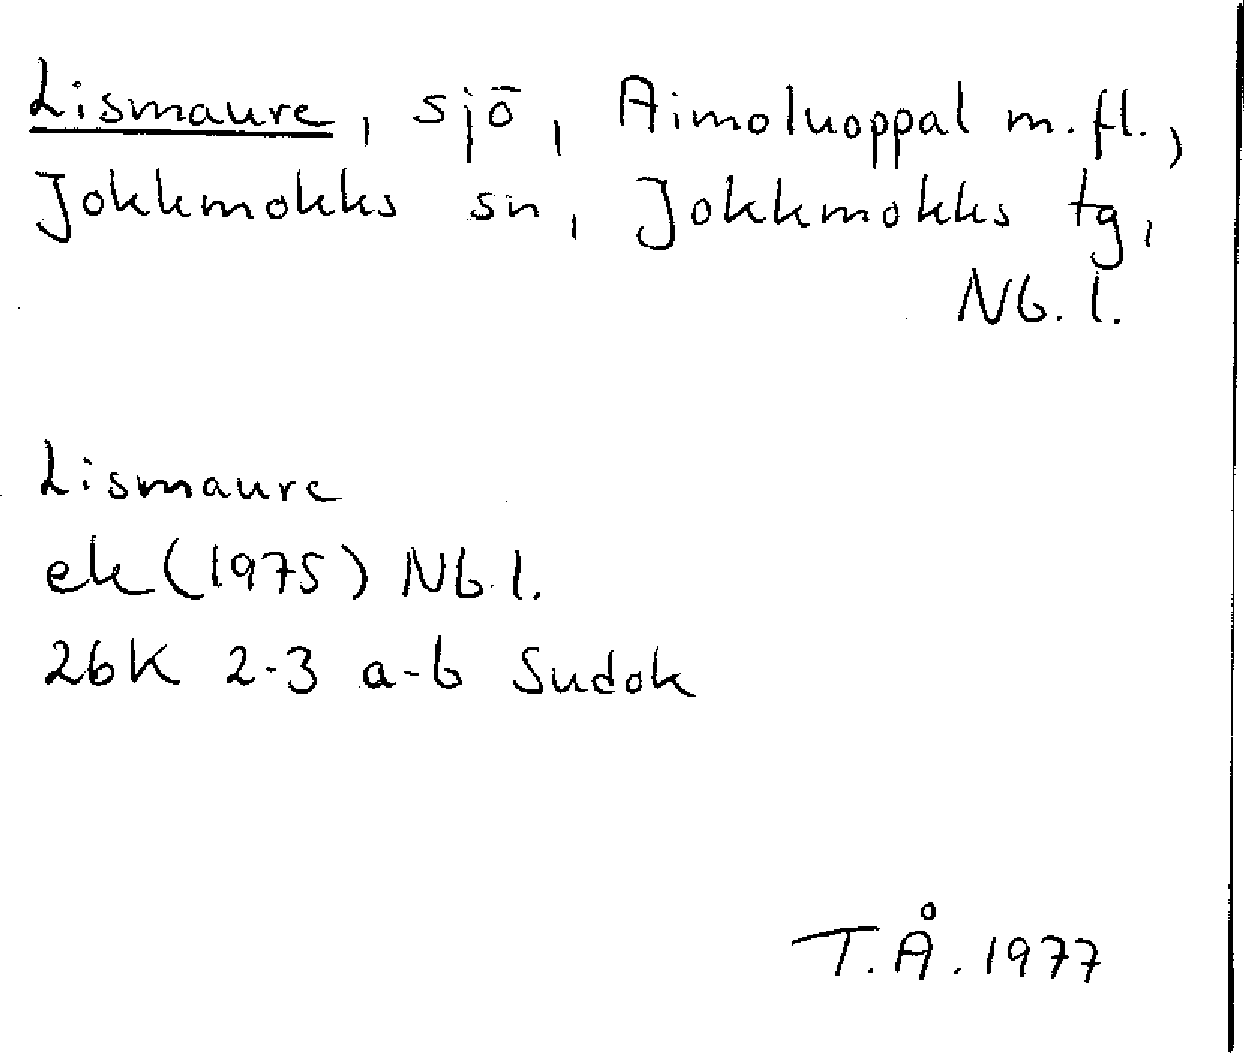 Lismaure, sjö, Aimoluoppal m.fl.,
Jokkmokks sn, Jokkmokks tg,
Nb.l.
Lismaure
ek (1975) Nb.l.
26K 2-3 a-b Sudok
T.Å. 1977